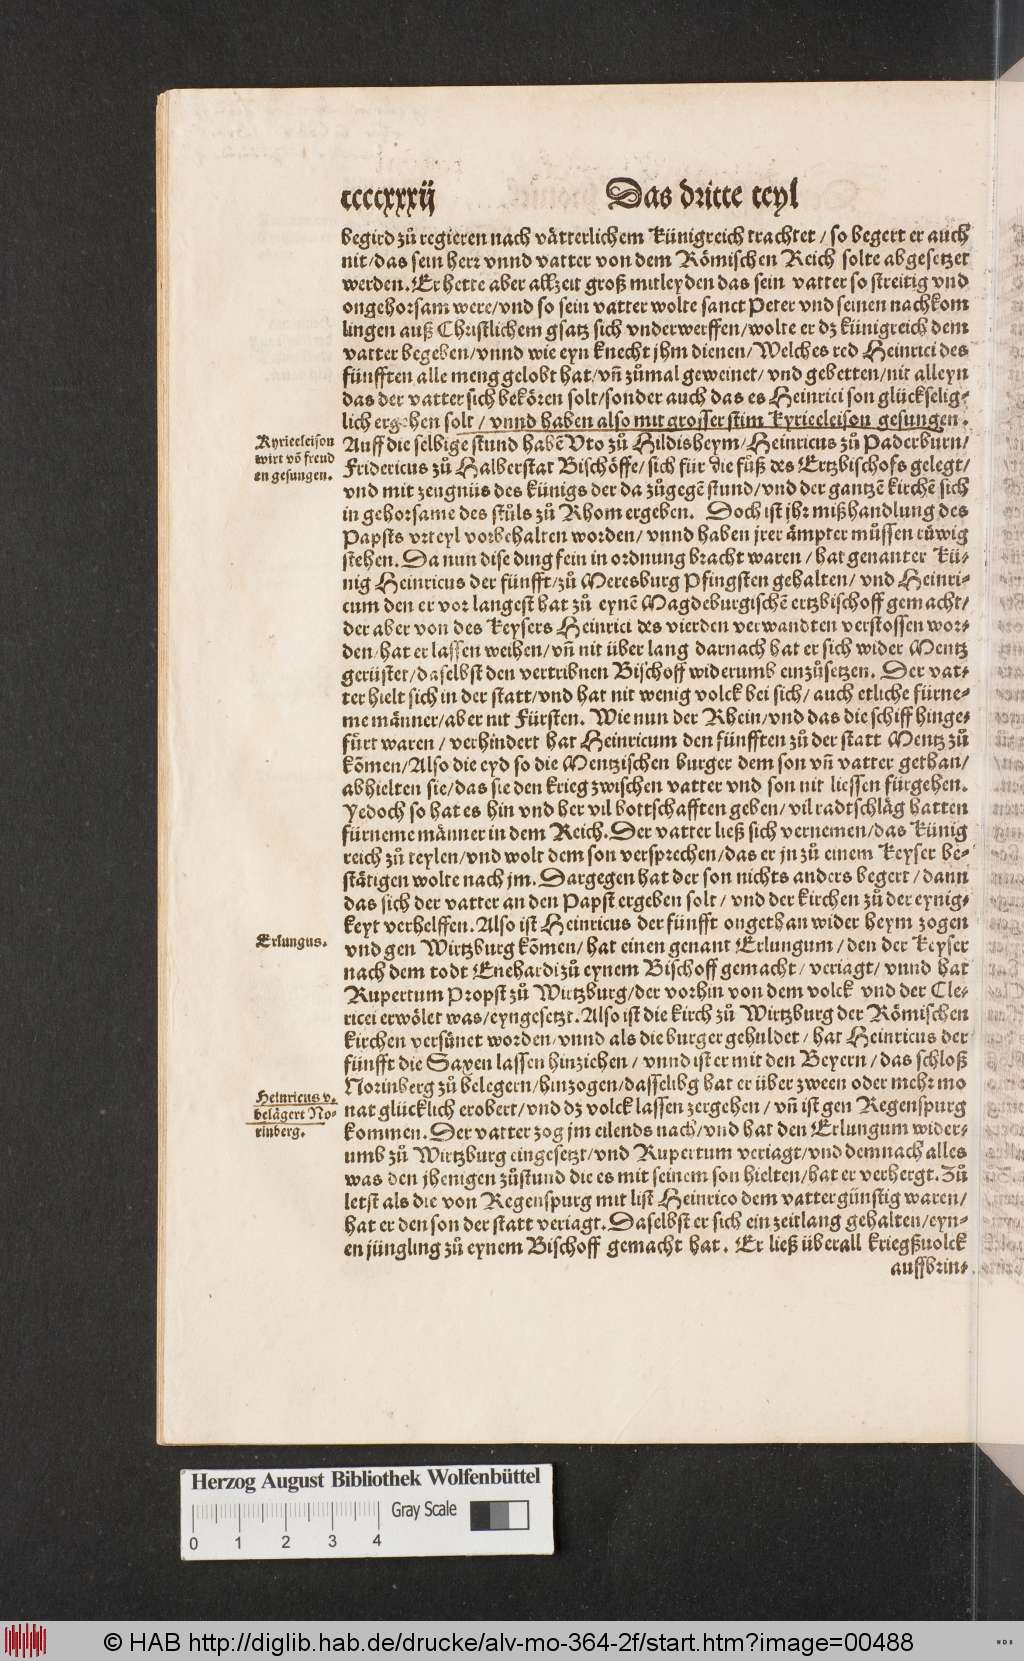 ccccxxxij Das dritte teyl
begird zů regieren nach vätterlichem Künigreich trachtet / so begert er auch
nit / das sein herr vnnd vatter von dem Römischen Reich solte abgesetzet
werden. Er hette aber allzeit groß mitleyden das sein vatter so streitig vnd
ongehorsam were / vnd so sein vatter wolte sanct Peter vnd seinen nachkom
lingen auß Christlichem gsatz sich vnderwerffen / wolte er dz künigreich dem
vatter begeben / vnnd wie eyn knecht jhm dienen / Welches red Heinrici des
fünfften alle meng gelobt hat / vñ zůmal geweinet / vnd gebetten / nit alleyn
das der vatter sich bekören solt / sonder auch das es Heinrici son glückselig⸗
lich ergehen solt / vnnd haben also mit grosser stim Kyrieeleison gesungen.
Kyrieeleison
wirt võ freud
en gesungen.
Auff die selbige stund habē Vto zů Hildisheym / Heinricus zů Paderburn /
Fridericus zů Halberstat Bischöffe / sich für die füß des Ertzbischofs gelegt /
vnd mit zeugnüs des künigs der da zůgegē stund / vnd der gantzē kirchē sich
in gehorsame des stůls zů Rhom ergeben. Doch ist jhr mißhandlung des
Papsts vrteyl vorbehalten worden / vnnd haben jrer ämpter můssen růwig
stehen. Da nun dise ding fein in ordnung bracht waren / hat genanter Kü⸗
nig Heinricus der fünfft / zů Meresburg Pfingsten gehalten / vnd Heinri⸗
cum den er vor langest hat zů eynē Magdeburgischē ertzbischoff gemacht /
der aber von des Keysers Heinrici des vierden verwandten verstossen wor⸗
den / hat er lassen weihen / vñ nit über lang darnach hat er sich wider Mentz
gerüstet / daselbst den vertribnen Bischoff widerumb einzůsetzen. Der vat⸗
ter hielt sich in der statt / vnd hat nit wenig volck bei sich / auch etliche fürne⸗
me männer / aber nit Fürsten. Wie nun der Rhein / vnd das die schiff hinge⸗
fürt waren / verhindert hat Heinricum den fünfften zů der statt Mentz zů
kõmen / Also die eyd so die Mentzischen burger dem son vñ vatter gethan /
abhielten sie / das sie den krieg zwischen vatter vnd son nit liessen fürgehen.
Yedoch so hat es hin vnd her vil bottschafften geben / vil radtschläg hatten
fürneme männer in dem Reich. Der vatter ließ sich vernemen / das Künig
reich zů teylen / vnd wolt dem son versprechen / das er jn zů einem Keyser be⸗
stätigen wolte nach jm. Dargegen hat der son nichts anders begert / dann
das sich der vatter an den Papst ergeben solt / vnd der kirchen zů der eynig⸗
keyt verhelffen. Also ist Heinricus der fünfft ongethan wider heym zogen
Erlungus.
vnd gen Wirtzburg kõmen / hat einen genant Erlungum / den der Keyser
nach dem todt Enehardi zů eynem Bischoff gemacht / veriagt / vnnd hat
Rupertum Propst zů Wirtzburg / der vorhin von dem volck vnd der Cle⸗
ricei erwölet was / eyngesetzt. Also ist die kirch zů Wirtzburg der Römischen
kirchen versünet worden / vnnd als die burger gehuldet / hat Heinricus der
fünfft die Saxen lassen hinziehen / vnnd ist er mit den Beyern / das schloß
Norinberg zů belegern / hinzogen / dasselibg hat er über zween oder mehr mo
Heinricus v.
belägert No⸗
rinberg.
nat glücklich erobert / vnd dz volck lassen zergehen / vñ ist gen Regenspurg
kommen. Der vatter zog jm eilends nach / vnd hat den Erlungum wider⸗
umb zů Wirtzburg eingesetzt / vnd Rupertum veriagt / vnd demnach alles
was den jhenigen zůstund die es mit seinem son hielten / hat er verhergt. Zů
letst als die von Regenspurg mit list Heinrico dem vatter günstig waren /
hat er den son der statt veriagt. Daselbst er sich ein zeitlang gehalten / eyn⸗
en jüngling zů eynem Bischoff gemacht hat. Er ließ überall kriegßuolck
auffbrin⸗
Herzog August Bibliothek Wolfenbüttel
Gray Scale
0 1 2 3 4
© HAB http://diglib.hab.de/drucke/alv-mo-364-2f/start.htm?image=00488